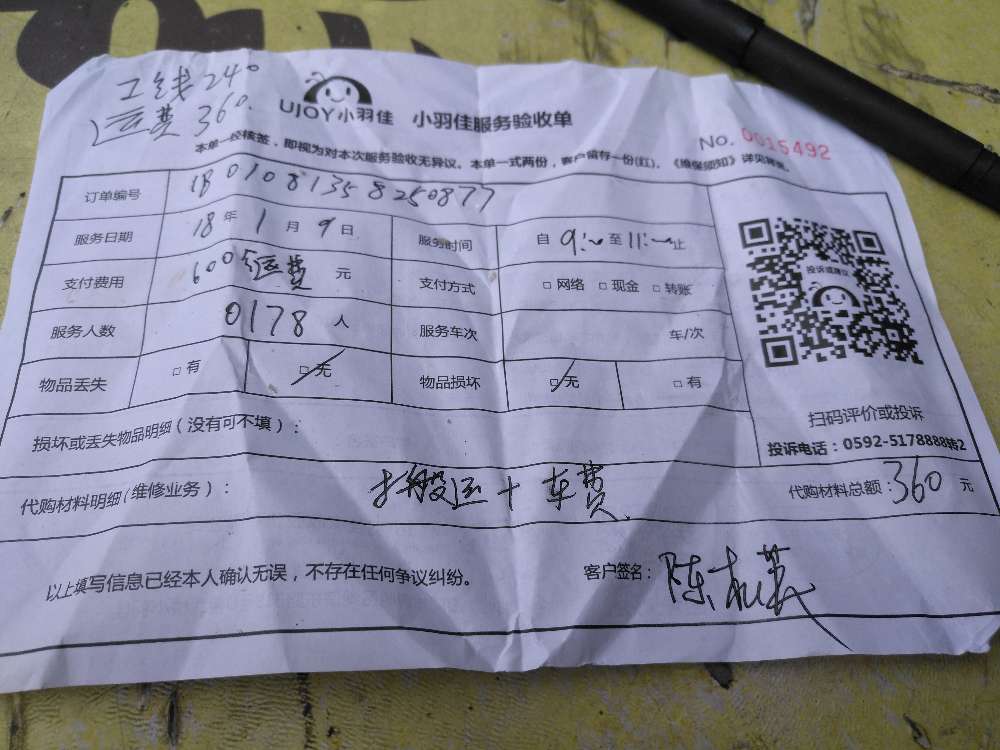 工钱240
运费360.
UJOY小羽佳 小羽佳服务验收单
No. 0015492
本单一经核签，即视为对本次服务验收无异议。本单一式两份，客户留存一份(红)。《维保须知》详见背面。
订单编号 180108135825087７
服务日期 18年1月9日 服务时间 自9:~至11:~止
支付费用 600 运费 元 支付方式 □网络 □现金 □转账
投诉或建议
服务人数 0178人 服务车次 车/次
物品丢失 □有 □无 物品损坏 □无 □有
扫码评价或投诉
损坏或丢失物品明细（没有可不填）：
投诉电话：0592-5178888转2
代购材料明细（维修业务）： 搬运+车费 代购材料总额：360元
以上填写信息已经本人确认无误，不存在任何争议纠纷。 客户签名：陈